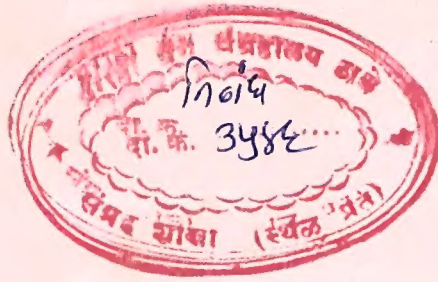 मराठी ग्रंथ संग्रहालय ठाणे
निबंध
दा. क्र. ३५४६....
संग्रह शाखा (स्थळ प्रत)